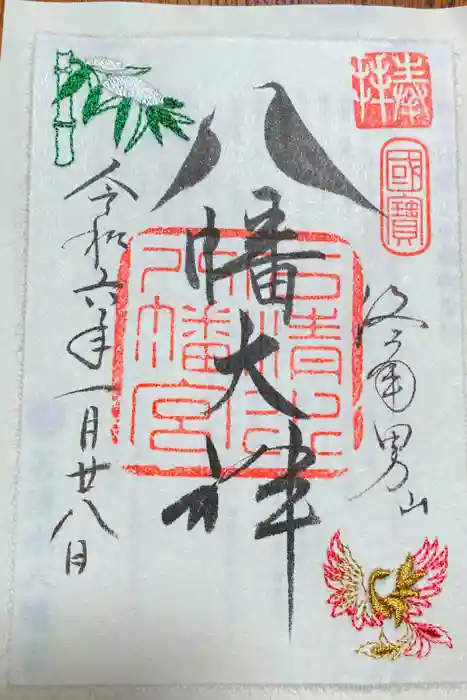 奉拝
國寶
洛南男山
八幡大神
石清水八幡宮
令和六年一月廿八日